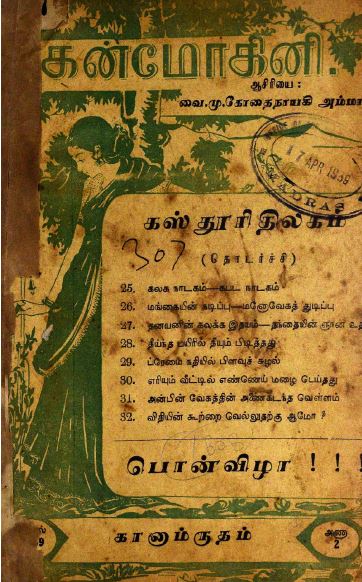 கன்மோகினி.
ஆசிரியை :
வை.மு.கோதைநாயகி அம்மா
17 APR 1939
MADRAS
கஸ்தூரிதிலகம்
307
(தொடர்ச்சி)
25. கலக நாடகம்—கபட நாடகம்
26. மங்கையின் நடிப்பு—மனோவேகத் துடிப்பு
27. தனயனின் கலக்க இதயம்—தந்தையின் ஞான உத
28. தீய்ந்த மயிரில் தீயும் பிடித்தது
29. ப்ரேமை நதியில் பிளவுச் சுழல்
30. எரியும் வீட்டில் எண்ணெய் மழை பெய்தது
31. அன்பின் வேகத்தின் அணைகடந்த வெள்ளம்
32. விதியின் கூற்றை வெல்லுதற்கு ஆமோ ?
பொன்விழா ! ! !
ல்
9
கானாம்ருதம்
அணா
2